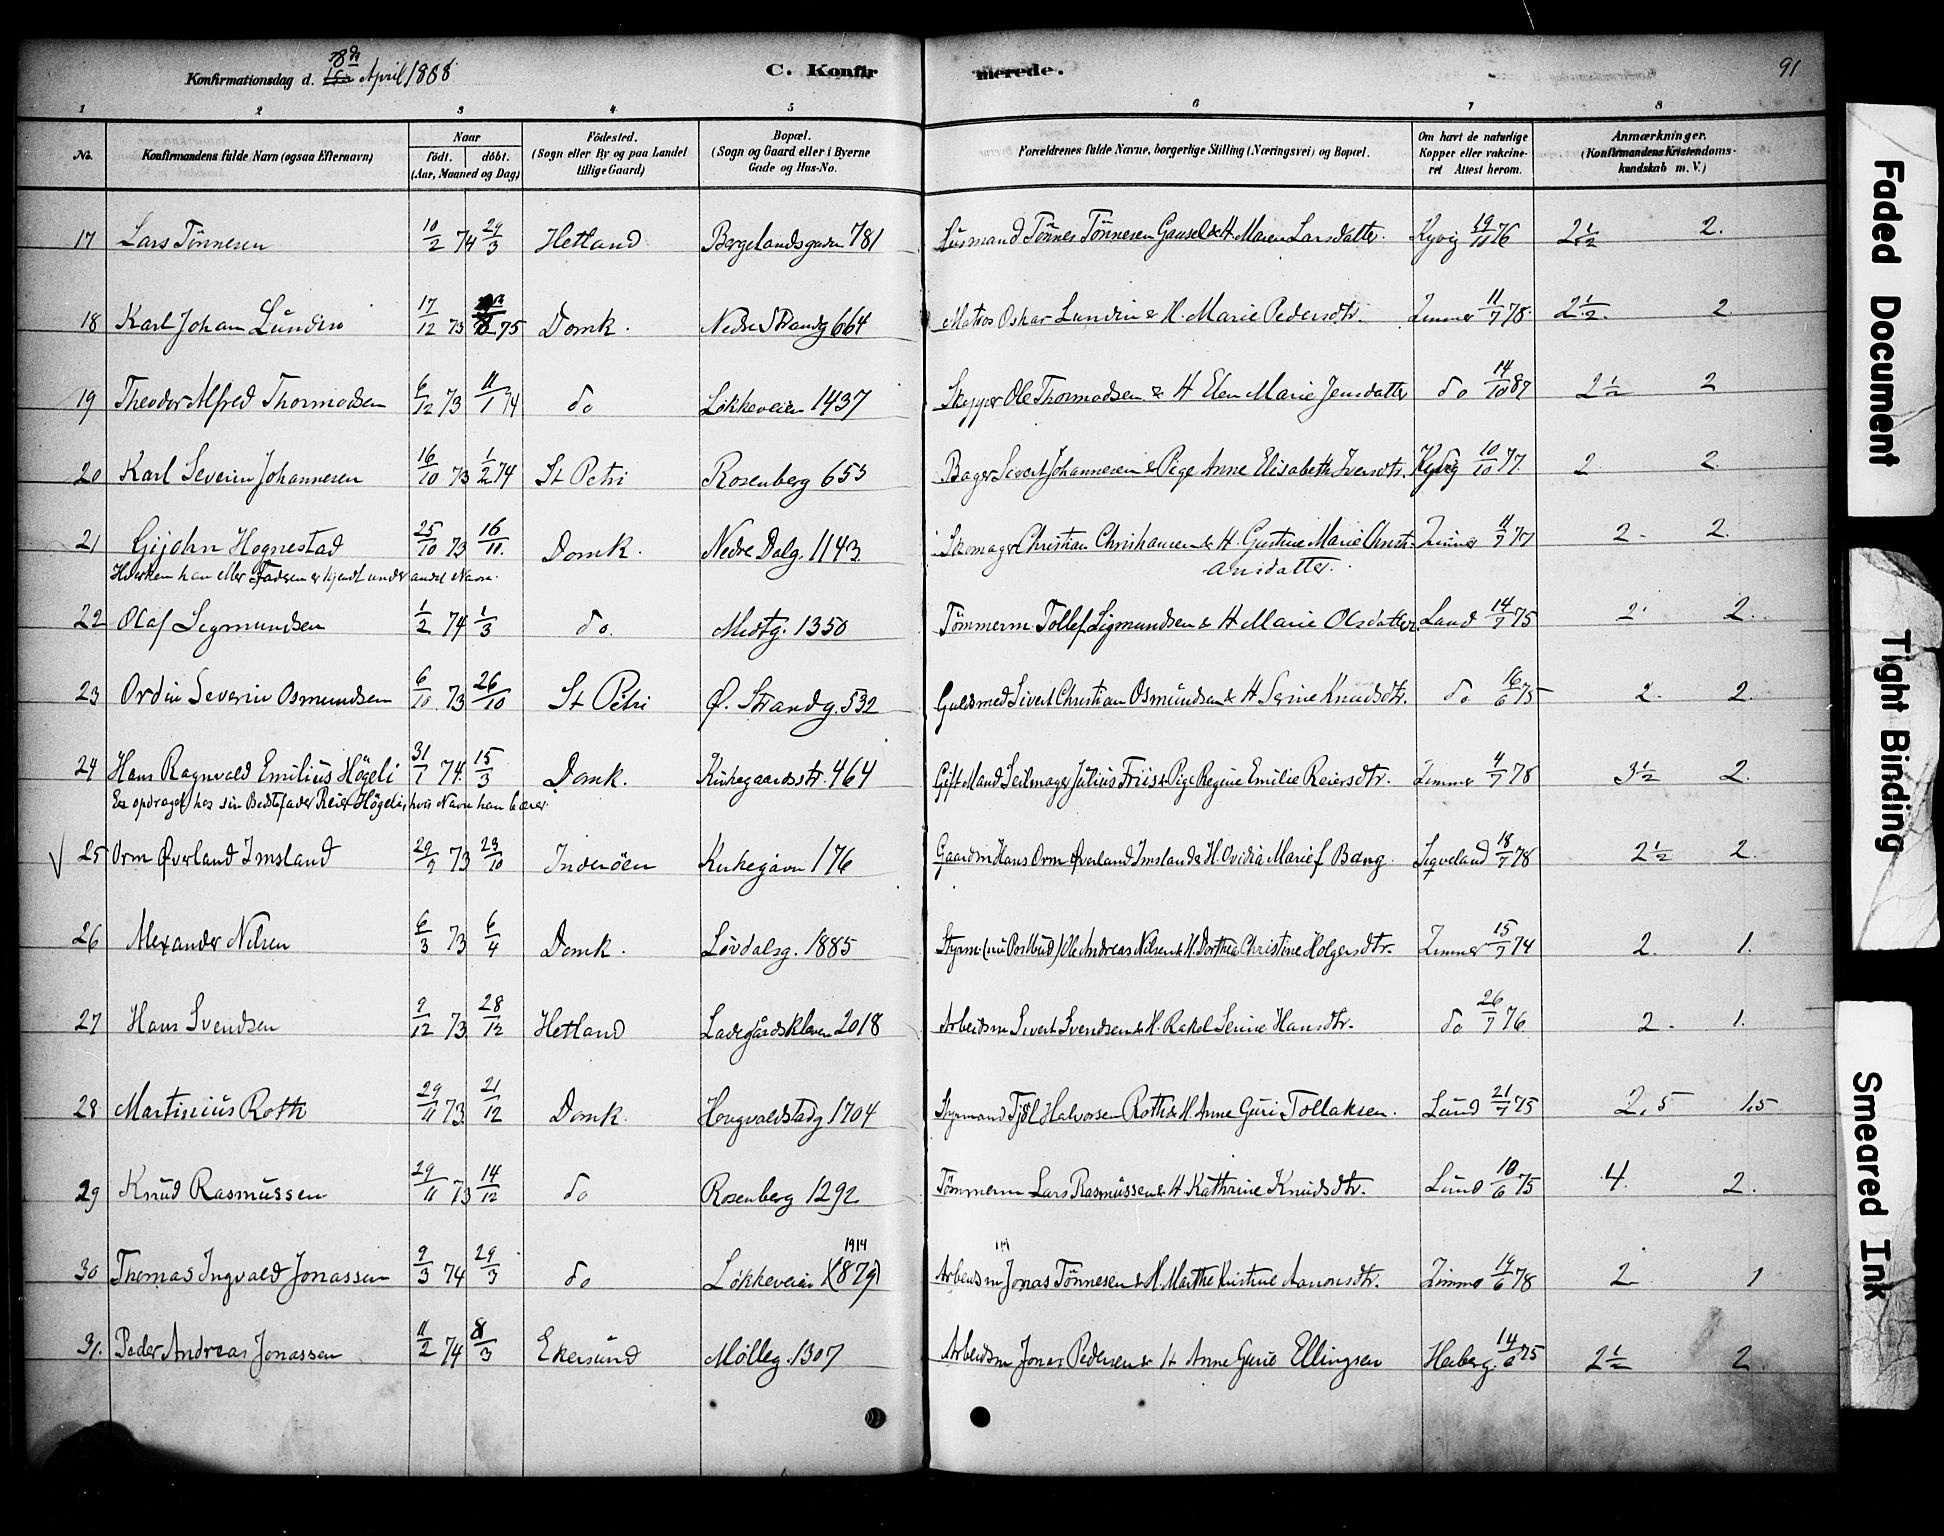 Konfirmationsdag d. 8de April 1888
C. Konfirmerede.
91
1 2 3 4 5 6 7 8
No.
Konfirmandens fulde Navn (ogsaa Efternavn)
Naar
födt. döbt.
(Aar, Maaned og Dag)
Födested.
(Sogn eller By og paa Landet
tillige Gaard)
Bopæl.
(Sogn og Gaard eller i Byerne
Gade og Hus-No.
Forældrenes fulde Navne, borgerlige Stilling (Næringsvei) og Bopæl.
Om havt de naturlige
Kopper eller vakcine-
ret Attest herom.
Anmærkninger.
(Konfirmandens Kristendoms-
kundskab m. V.)
17 Lars Tönnesen 10/2 74 29/3 Hetland Bergelandsgaden 781 Tönnes Tönnesen Gausel & H. Maren Larsdatter. Kyvig 19/11 76 2 1/2 2.
18 Karl Johan Lundin 17/12 73 75 Domk. Nedre Strandg 664 Matros Oskar Lundin & H. Marie Pedersdtr. Zimmer 11/7 78. 2 1/2. 2.
19 Theodor Alfred Thormodsen 6/12 73 11/1 74 do Lökkeveien 1437 Skypper Ole Thormodsen & H Elen Marie Jensdatter do 14/10 87 2 1/2 2
20 Karl Severin Johannesen 16/10 73 1/2 74 St Petri Rosenberg 653 Bager Sivert Johannesen & Pige Anne Elisabeth Iversdtr. Kyvig 10/10 77. 2 2.
21 Gijohn Hognestad 25/10 73 16/11. Domk. Nedre Dalg. 1143. Skomager Christian Christiansen & H. Gustine Marie Christi- Zimmer 11/7 77 2. 2.
ansdatter.
Hverken han eller Faderen er kjendt under andet Navn.
22 Olaf Sigmundsen 1/2 74 1/3 do. Midtg. 1350 Tömmerm Tollef Sigmundsen & H Marie Olsdatter. Lund 14/7 75 2. 2.
23 Ordin Severin Osmundsen 6/10 73 26/10 St Petri Ø. Strandg. 532 Guldsmed Sivert Christian Osmundsen & H Serine Knudsdtr. do 16/6 75 2. 2.
24 Hans Ragnvald Emilius Högeli 31/1 74. 15/3 Domk. Kirkegaardsstr. 464 Gift Mand Seilmager Julius Friis & Pige Regine Emilie Reiersdtr. Zimmer 4/7 78 3 1/2 2.
Er opdraget hos sin Bedstefader Reier Högeli, hvis Navn han bærer
25 Orm Øverland Imsland 29/9 73 23/10 Inderöen Kirkegaven 176 Gaardm Hans Orm Øverland Imsland & H. Ovidia Marie f Bang. Sigveland 18/7 78 2 1/2 2.
26 Alexander Nilsen 6/3 73 6/4 Domk. Lövdalsg. 1885 Styrm. (nu Postbud) Ole Andreas Nilsen & H. Dorthea Christine Holgersdtr. Zimmer 15/7 74 2. 1.
27 Hans Svendsen 9/12 73. 28/12 Hetland Ladegårdskleven 2018 Arbeidsm Sivert Svendsen & H. Rakel Serine Hansdtr. do 26/7 76 2. 1.
28 Martinius Roth 29/11 73. 21/12 Domk. Hougvaldstadg 1704 Styrmand Tjöl Halvorsen Roth & H. Anne Guri Tollaksen. Lund 21/7 75 2,5 1,5
29 Knud Rasmussen 29/11 73 14/12 do Rosenberg 1292 Tömmerm Lars Rasmussen & H Kathrine Knudsdtr. Lund 10/6 75 4. 2.
30 Thomas Ingvald Jonassen 9/3 74 29/3 do Lökkeveien 1914 (1879) Arbeidsm Jonas Tönnesen & H. Marthe Kirstine Aanonsdtr. Zimmer 19/6 78 2 1
31. Peder Andreas Jonassen 11/2 74 8/3 Ekersund Mölleg. 1307 Arbeidsm Jonas Pedersen & H. Anne Gurie Ellingsen Heiberg. 14/6 75 2 1/2 2
Faded Document
Tight Binding
Smeared Ink